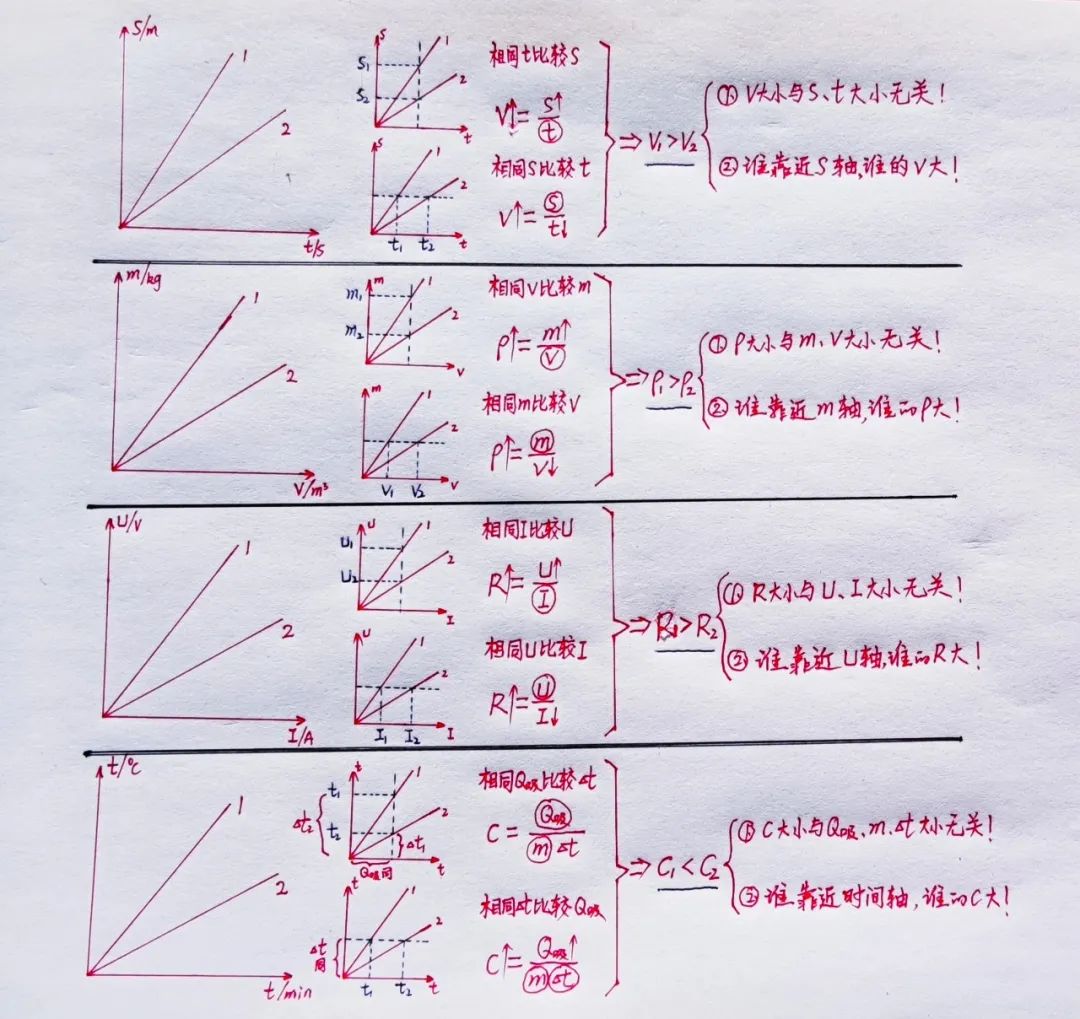 S/m
1
2
t/s
S
S₁
S₂
1
2
t
S
1
2
t₁ t₂ t
相同t比较S
V↑=S↑/t
相同S比较t
V↑=S/t↓
⇒V₁>V₂
① V大小与S、t大小无关!
② 谁靠近S轴,谁的V大!
m/kg
1
2
V/m³
m
m₁
m₂
1
2
V
m
1
2
V₁ V₂ V
相同V比较m
ρ↑=m↑/V
相同m比较V
ρ↑=m/V↓
⇒ρ₁>ρ₂
① ρ大小与m、V大小无关!
② 谁靠近m轴,谁的ρ大!
U/V
1
2
I/A
U
U₁
U₂
1
2
I
U
1
2
I₁ I₂ I
相同I比较U
R↑=U↑/I
相同U比较I
R↑=U/I↓
⇒R₁>R₂
① R大小与U、I大小无关!
② 谁靠近U轴,谁的R大!
t/℃
1
2
t/min
t
t₁
t₂
Δt₂
Δt₁
1
2
Q吸同
t
t
1
2
Δt同
t₁ t₂ t
相同Q吸比较Δt
C=Q吸/mΔt
相同Δt比较Q吸
C↑=Q吸↑/mΔt
⇒C₁<C₂
① C大小与Q吸、m、Δt大小无关!
② 谁靠近时间轴,谁的C大!